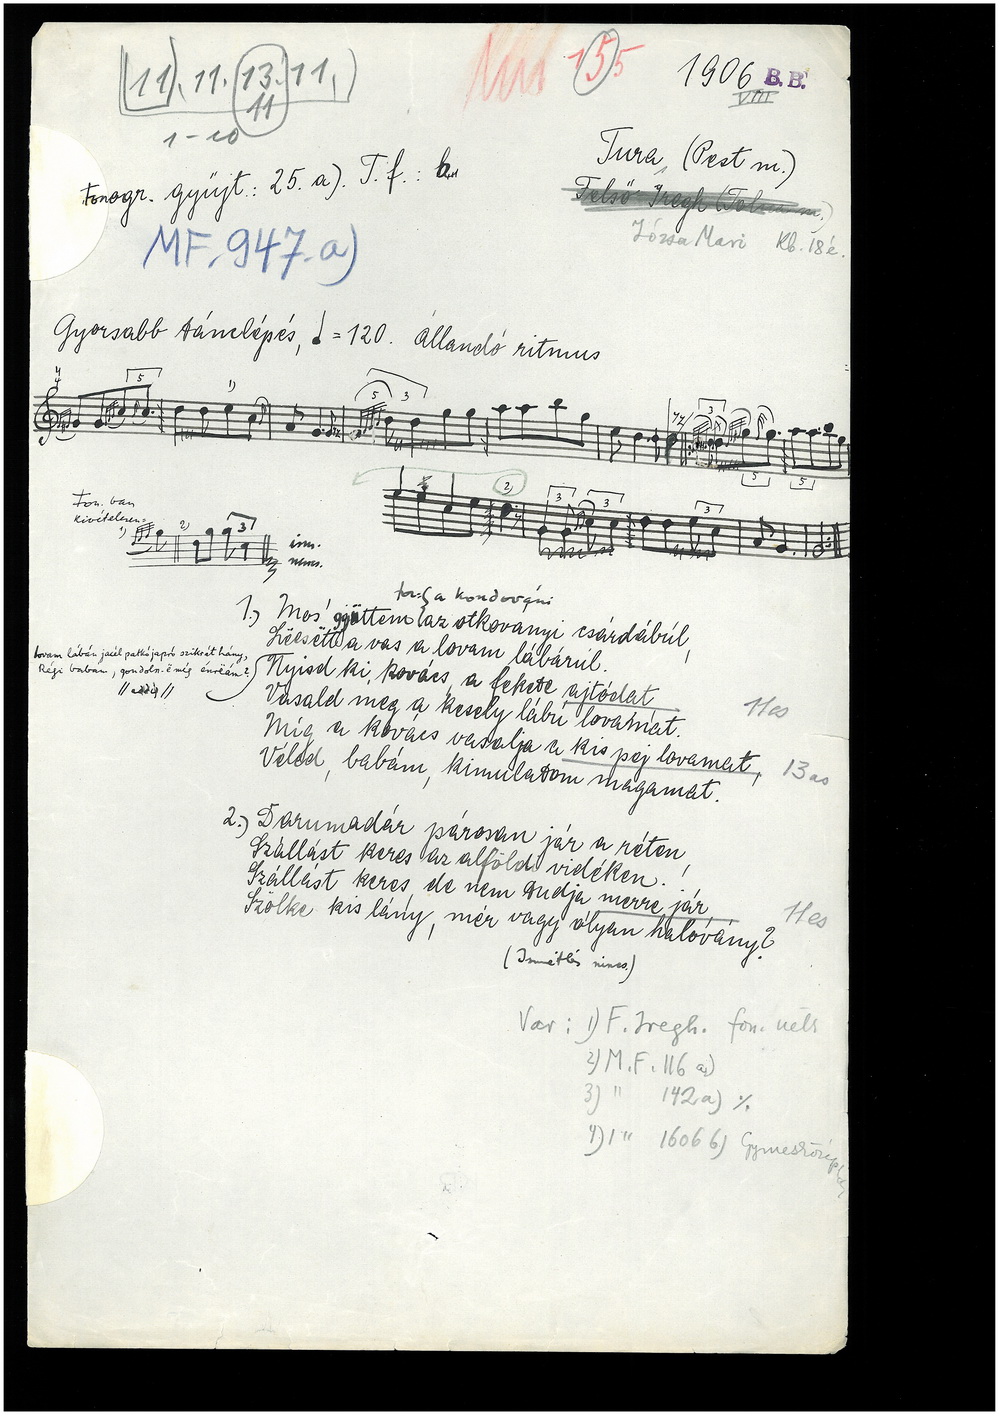 11, 11. 13. 11,
11
1-10
155
1906 B.B.
VIII
Fonogr. gyüjt.: 25. a). T. f.: b
Tura, (Pest m.)
Felső Iregh (Tolna m.)
Józsa Mari Kb. 18 é.
MF. 947. a)
Gyorsabb tánclépés, = 120. Állandó ritmus
5
1)
5 3
3
5 5
2)
3 3
3
Fon. ban
kivételesen:
1) 2) 3
ism.
nincs.
fon: a kondorányi
1.) Mos' gyüttem az otkovanyi csárdábúl,
Leesëtt a vas a lovam lábárúl.
Nyisd ki, kovács, a fekete ajtódat
Vasald meg a kesely lábú lovamat.
Míg a kovács vasalja a kis pej lovamat,
Veled, babám, kimulatom magamat.
lovam lábán jacél patkó, apró szikrát hány,
Régi babám, gondolsz-ë még énreám?
11es
13as
2.) Darumadár párosan jár a réten,
Szállást keres az alföldi vidéken.
Szállást keres, de nem tudja merre jár,
Szőlke kis lány, mér vagy olyan halovány?
11es
(Ismétlés nincs.)
Var: 1) F. Iregh. fon. nélk
2) M.F. 116 a)
3) " 142.a) %.
4) " 1606 b) Gymesközéplok